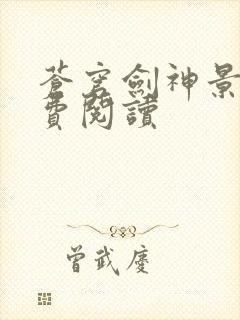 蒼穹劍神景
費閱讀
曾武慶